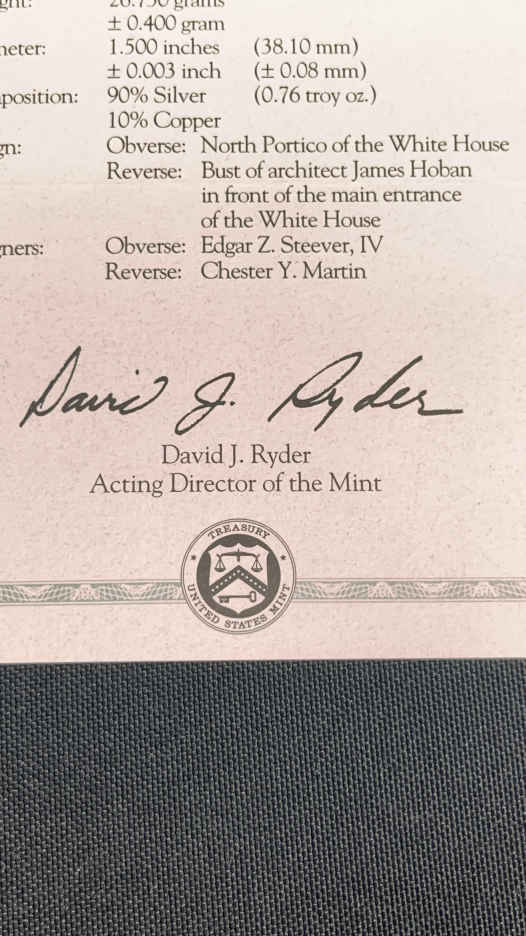 26.730 grams
± 0.400 gram
1.500 inches (38.10 mm)
± 0.003 inch (± 0.08 mm)
90% Silver (0.76 troy oz.)
10% Copper
Obverse: North Portico of the White House
Reverse: Bust of architect James Hoban
in front of the main entrance
of the White House
Obverse: Edgar Z. Steever, IV
Reverse: Chester Y. Martin
David J. Ryder
David J. Ryder
Acting Director of the Mint
TREASURY
UNITED STATES MINT